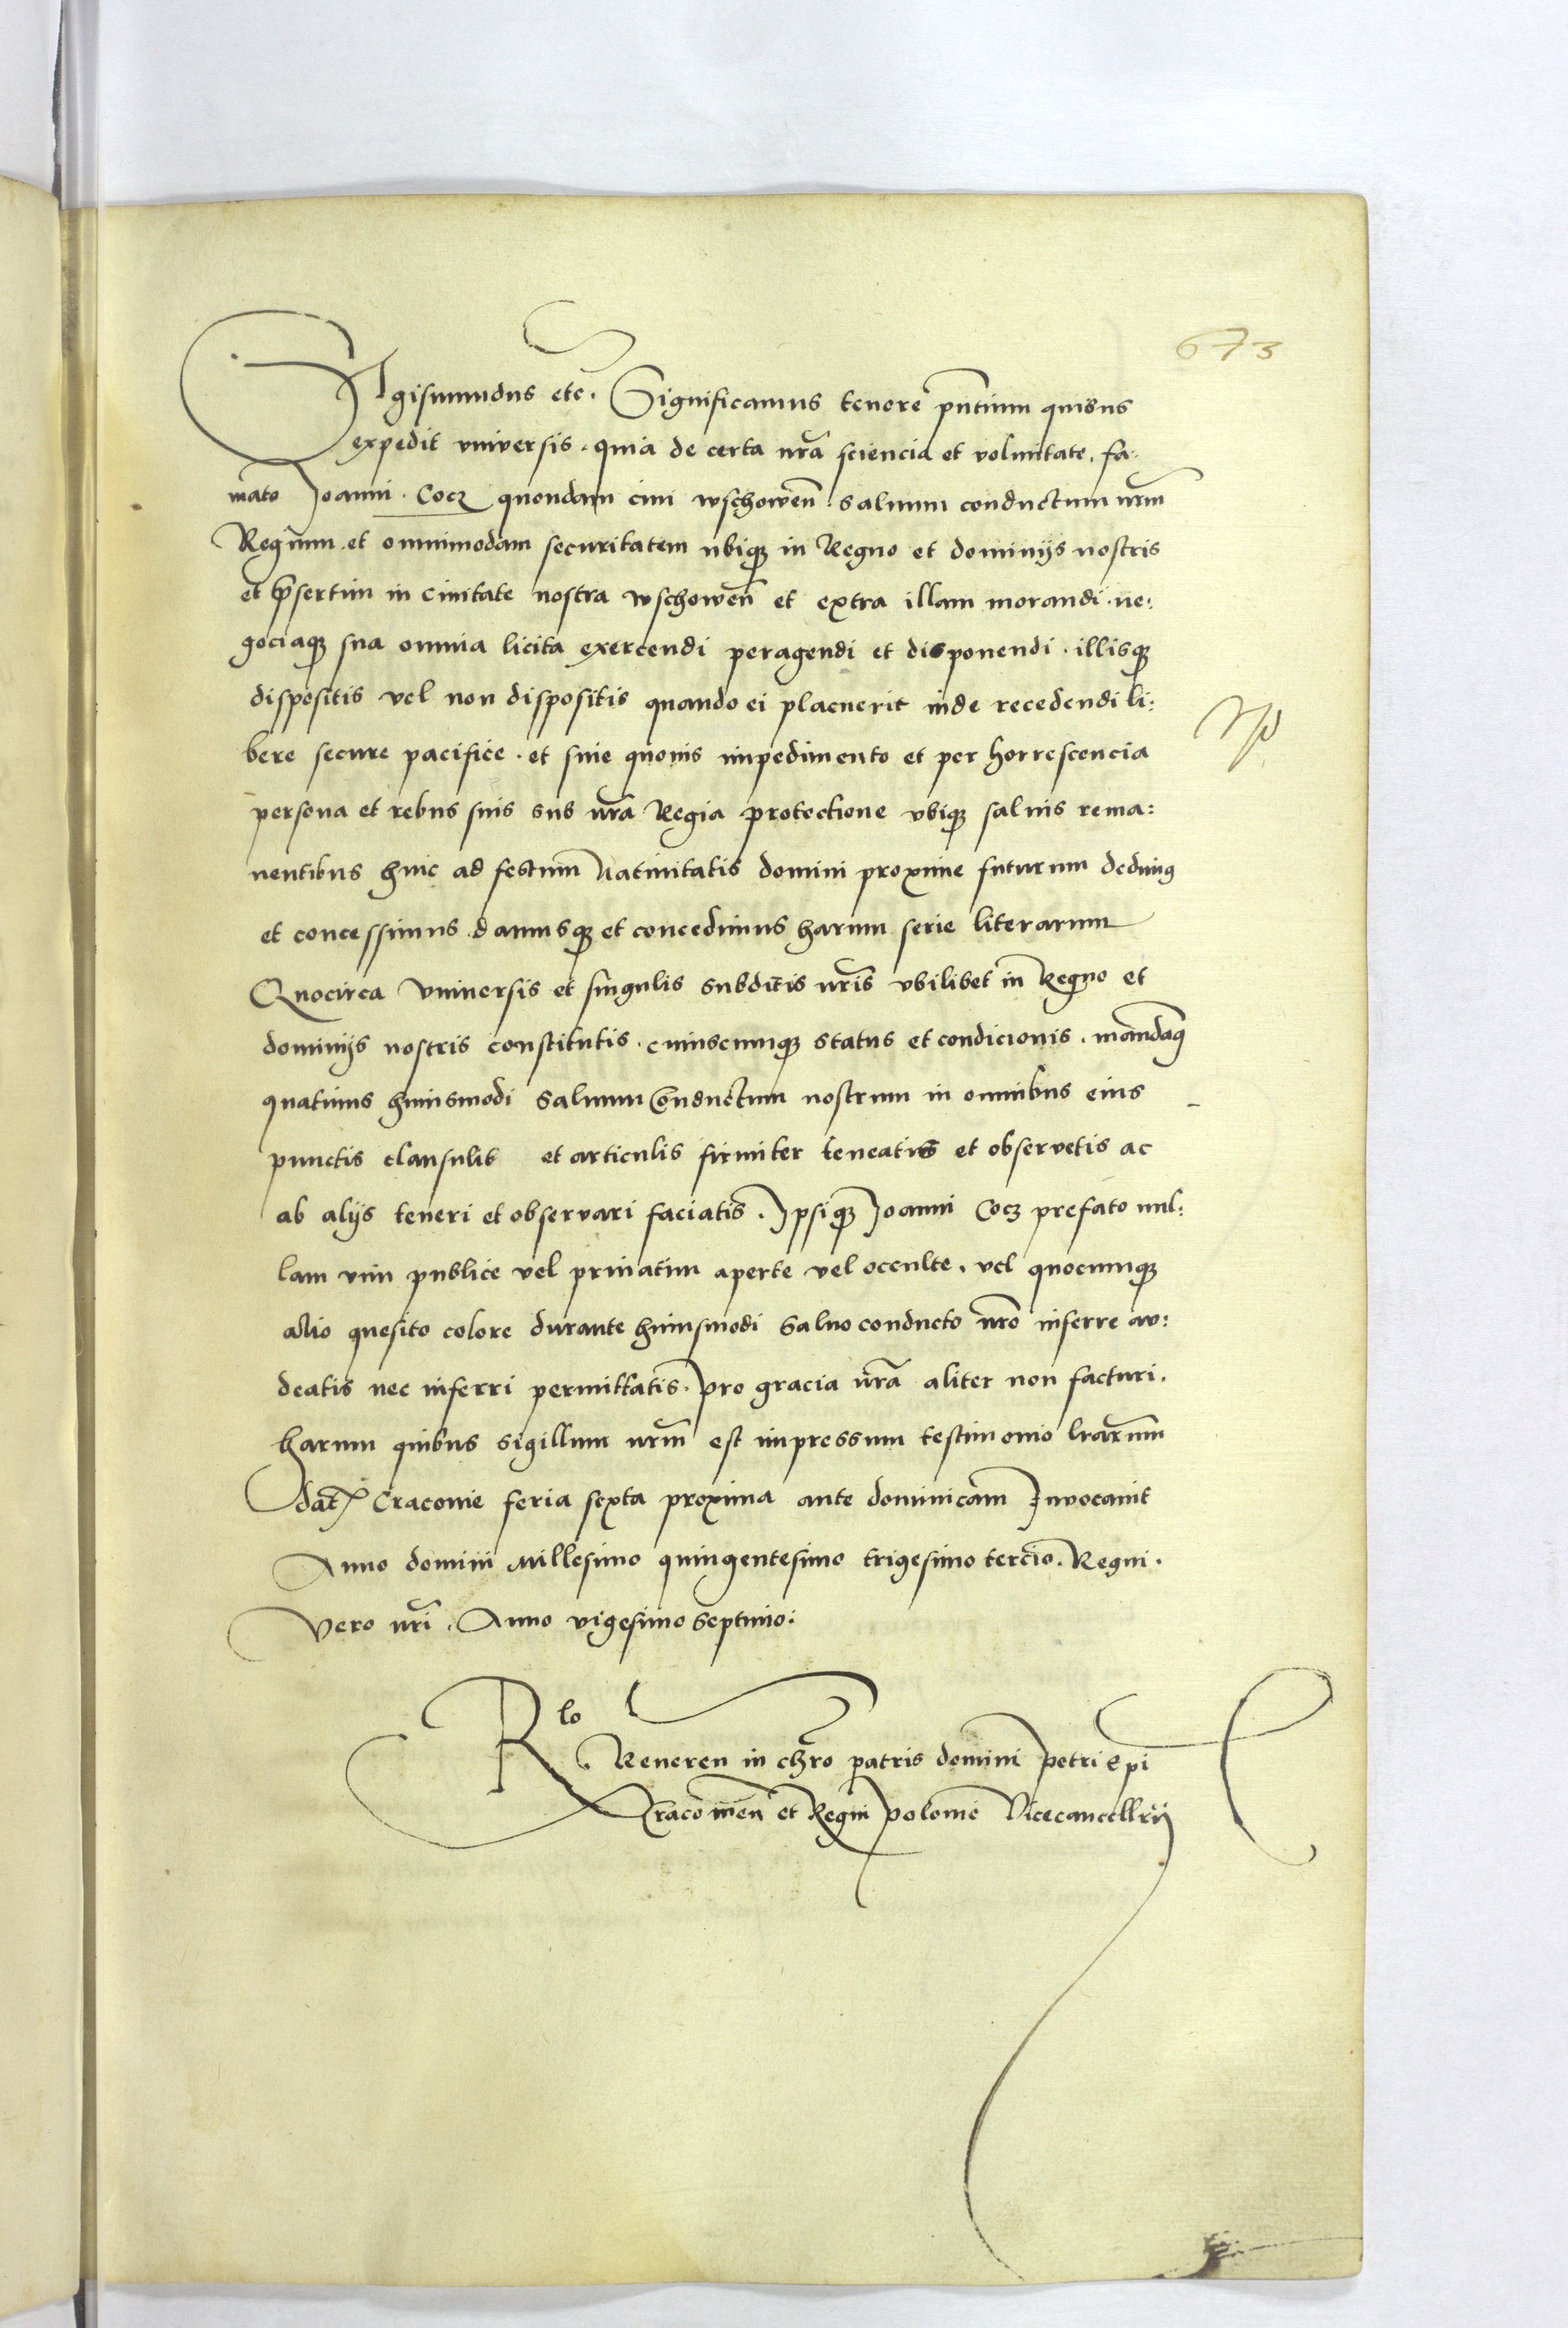 673
Sigismundus etc. Significamus tenore pntium quibus
expedit universis. quia de certa nra sciencia et voluntate. fa-
mato Joanni. Cocz quondam civi wschowen. salvum conductum nrm
Regium et omnimodam securitatem ubiqz in Regno et dominijs nostris
et psertim in civitate nostra wschowen et extra illam morandi. ne:
gociaqz sua omnia licita exercendi peragendi et disponendi. illisqz
dispositis vel non dispositis quando ei placuerit inde recedendi li:
bere secure pacifice. et sine quovis impedimento et per horrescencia
persona et rebus suis sub nra Regia protectione ubiqz salvis rema:
nentibus hinc ad festum Nativitatis domini proxime futurum dedimus
et concessimus damusqz et concedimus harum serie literarum
Quocirca universis et singulis subditis nris ubilibet in Regno et
dominijs nostris constitutis. cuiuscumqz status et condicionis. mandamus
quatinus huiusmodi salvum conductum nostrum in omnibus eius
punctis clausulis et articulis firmiter teneatis et observetis ac
ab alijs teneri et observari faciatis. Ipsiqz Joanni Cocz prefato nul:
lam vim publice vel privatim aperte vel occulte. vel quocumqz
alio quesito colore durante huiusmodi salvo conducto nro inferre au:
deatis nec inferri permittatis. pro gracia nra aliter non facturi.
harum quibus sigillum nrm est impressum testimonio lrarum
Dat Cracovie feria sexta proxima ante dominicam Invocavit
Anno domini Millesimo quingentesimo trigesimo tercio. Regni.
Vero nri. Anno vigesimo septimo.
Rlo Reveren in chro patris domini Petri Epi
Cracovien et Regni Polonie Vicecancellrij